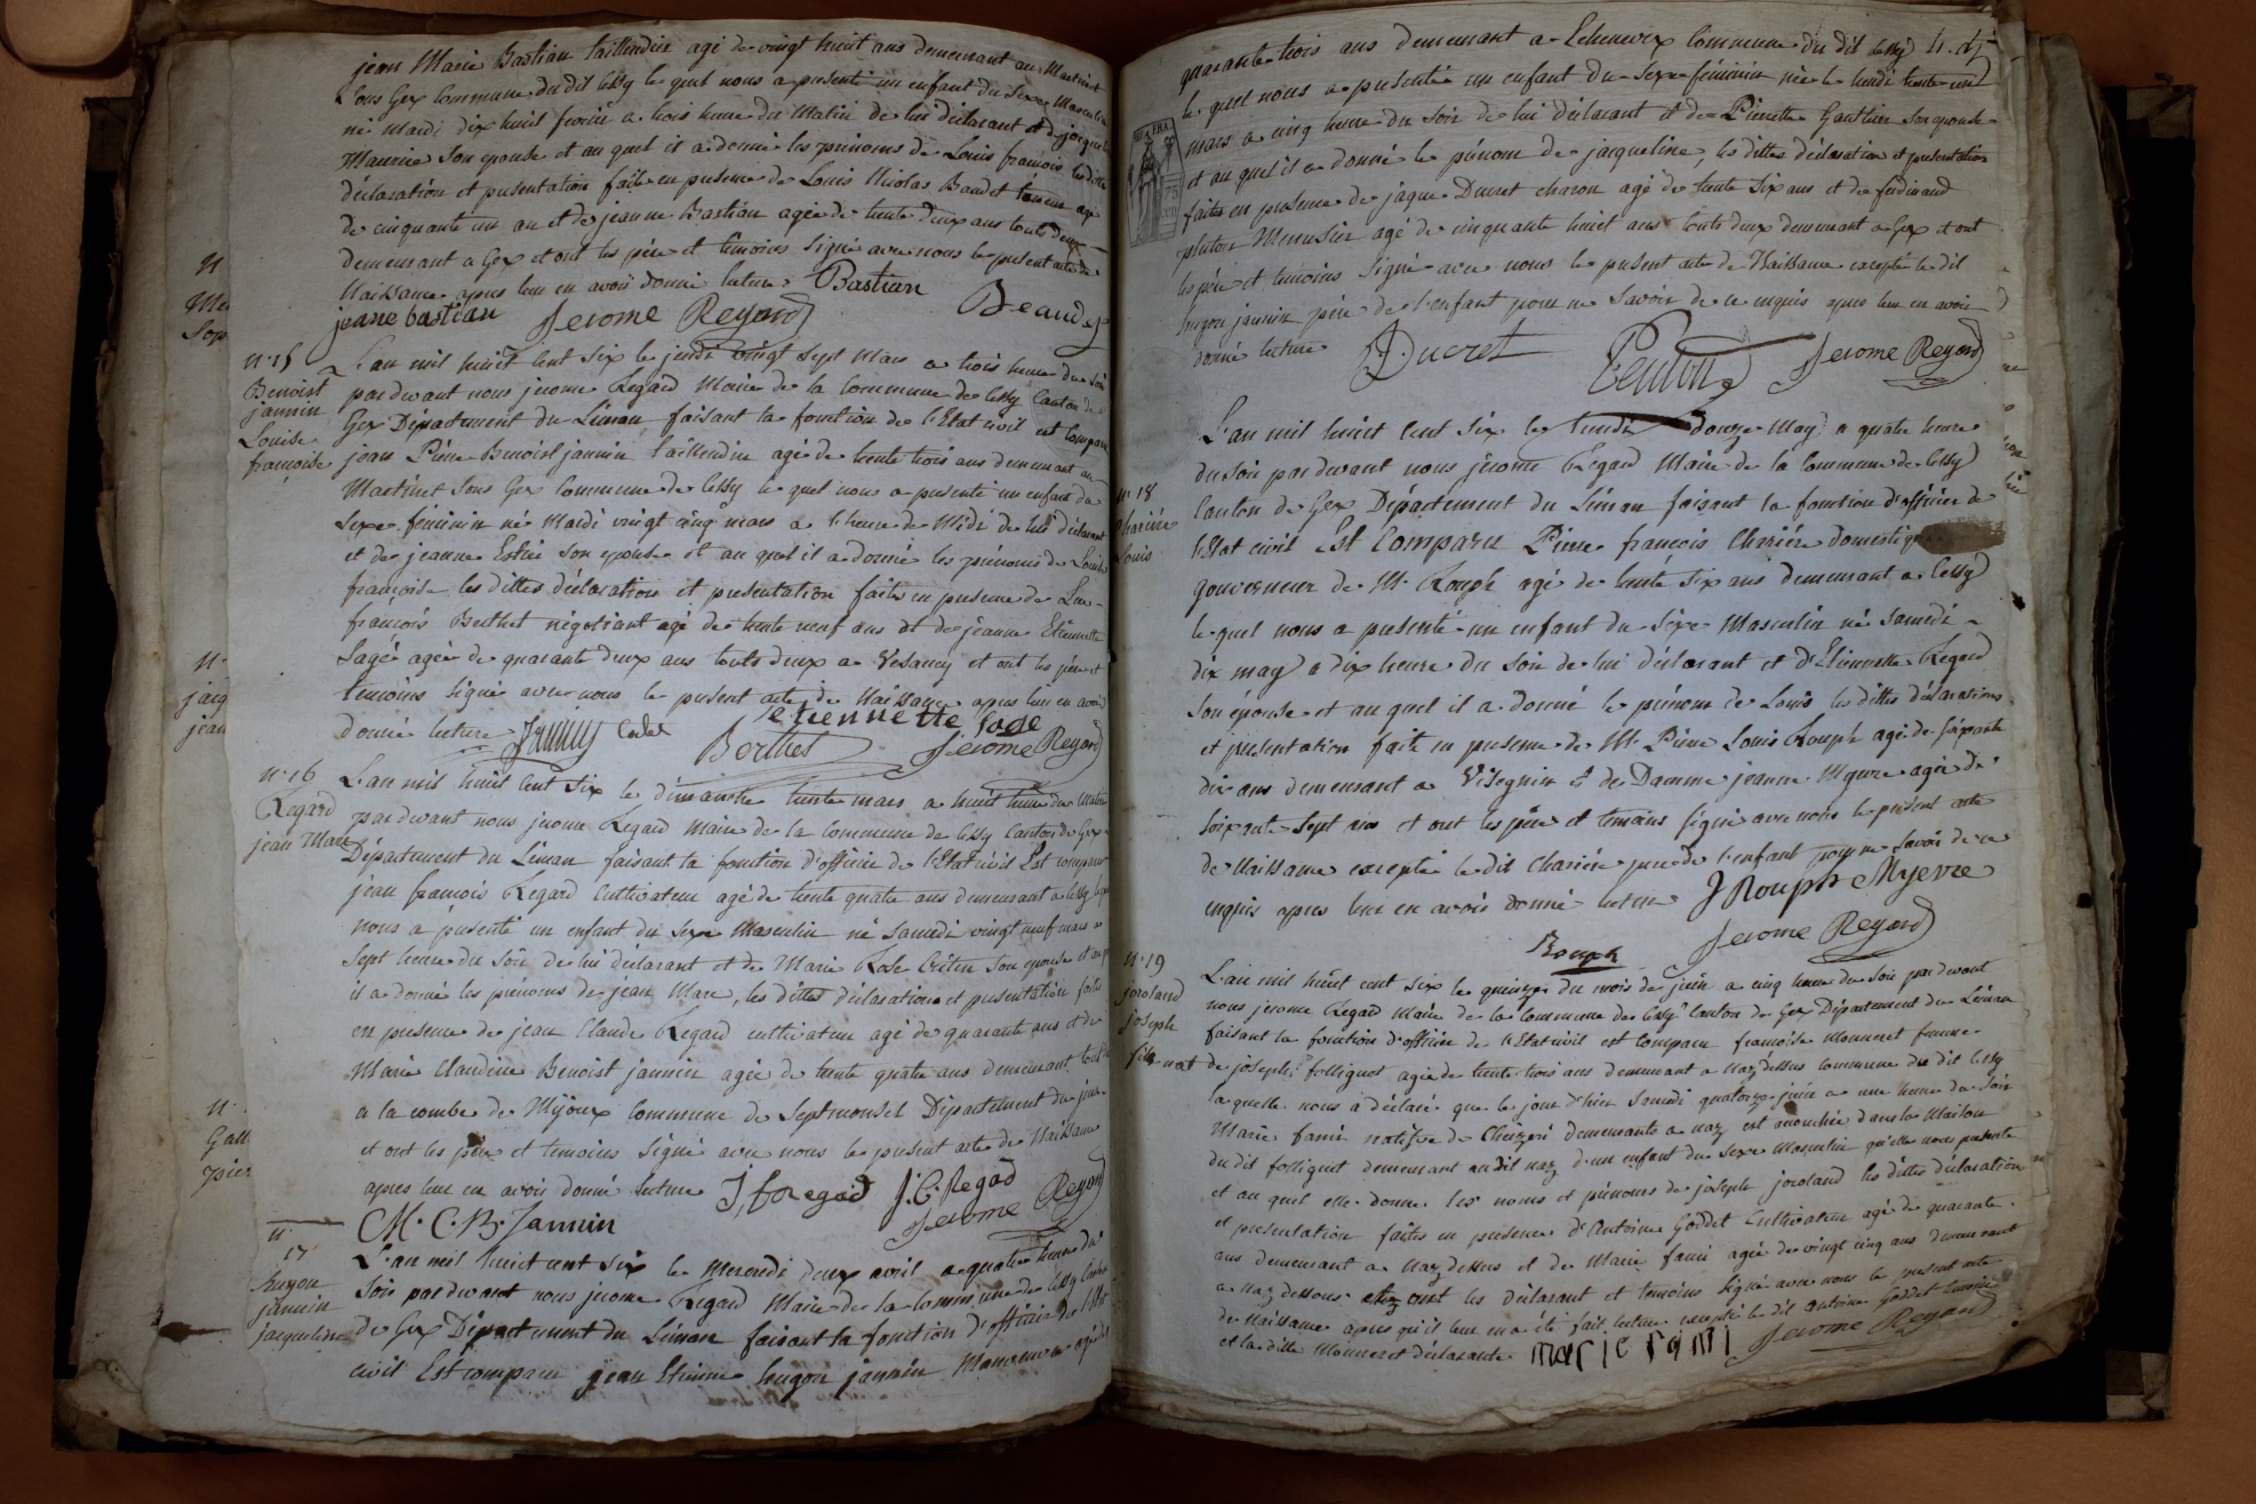 jean Marie Bastian taillendier agé de vingt huit ans demeurant au Martinet
sous Gex Commune du dit Cessy le quel nous a presenté un enfant du Sexe Masculin
né Mardi dix huit a trois heure du Matin de lui déclarant et de
Maurice son epouse et au quel il a donné les prénoms de Louis françois les dittes
déclaration et presentation faite en presence de Louis Nicolas Baudet agé
de cinquante un an et de jeanne Bastian agée de trente deux ans touts deux
demeurant a Gex et ont les père et témoins signé avec nous le present acte de
Naissance apres leur en avoir donné lecture Bastian
jeane bastian Jerome Regard Beaudet
n° 15
Benoist
jannin
Louise
françoise
L'an mil huit cent six le jeudi vingt sept Mars a trois heure du soir
par devant nous jerome Regard Maire de la Commune de Cessy Canton de
Gex Département du Léman faisant la fonction de l'Etat civil est Comparu
jean Pierre Benoist jannin taillendier agé de trente trois ans demeurant au
Martinet sous Gex Commune de Cessy le quel nous a presenté un enfant du
Sexe féminin né Mardi vingt cinq mars a l'heure de Midi de lui déclarant
et de jeanne son epouse et au quel il a donné les prénoms de Louise
françoise les dittes déclaration et presentation faite en presence de
françois Berthet négotiant agé de trente neuf ans et de jeanne Etiennette
Sagé agée de quarante deux ans touts deux a Vesancy et ont les père et
temoins signé avec nous le present acte de Naissance apres leur en avoir
donné lecture cadet etiennette Sage
Berthet Jerome Regard
n° 16
Regard
jean Marc
L'an mil huit Cent Six le dimanche trente mars a huit heure du matin
par devant nous jerome Regard Maire de la Commune de Cessy Canton de Gex
Département du Léman faisant la fonction d'officier de l'Etat civil Est comparu
jean françois Regard Cultivateur agé de trente quatre ans demeurant a Cessy le quel
nous a présenté un enfant du Sexe Masculin né Samedi vingt neuf mars a
Sept heure du Soir de lui déclarant et de Marie Rose Crétin son epouse et au quel
il a donné les prénoms de jean Marc, les dittes déclaration et presentation faites
en presence de jean Claude Regard cultivateur agé de quarante ans et de
Marie Claudine Benoist jannin agée de trente quatre ans demeurant touts
a la combe de Mijoux Commune de Septmoncel Département du jura
et ont les père et temoins signé avec nous le present acte de Naissance
apres leur en avoir donné lecture J, f Regad J. C. Regad
M. C. B. Jannin Jerome Regard
n°
17
hugon
jannin
jacqueline
L'an mil huit cent six le Mercredi deux avril a quatre heure du
Soir par devant nous jerome Regard Maire de la Commune de Cessy Canton
de Gex Département du Léman faisant la fonction d'officier de l'Etat
civil Est comparu jean Etienne hugon jannin agé de
quarante trois ans demeurant a Echenevex Commune du dit Cessy
le quel nous a presenté un enfant du Sexe féminin née le lundi trente un
mars a cinq heure du soir de lui déclarant et de Pierrette Gauthier son epouse
et au quel il a donné le prénom de jacqueline, les dittes déclaration et presentation
faites en presence de jaque Ducret charon agé de trente six ans et de ferdinand
Menusier agé de cinquante huit ans touts deux demeurant a Gex et ont
les père et temoins signé avec nous le present acte de Naissance excepté le dit
hugon jannin père de l'enfant pour ne Savoir de ce enquis apres leur en avoir
donné lecture Ducret Jerome Regard
n° 18
Charière
Louis
L'an mil huit Cent six le lundi douze May a quatre heure
du soir par devant nous jérome Regard Maire de la Commune de Cessy
Canton de Gex Département du Léman faisant la fonction d'officier de
l'Etat civil Est Comparu Pierre françois Charière domestique
gouverneur de Mr Rouph agé de trente six ans demeurant a Cessy
le quel nous a présenté un enfant du Sexe Masculin né Samedi
dix may a dix heure du soir de lui déclarant et d'Etiennette Regard
Son épouse et au quel il a donné le prénom de Louis les dittes déclarations
et presentation faite en presence de Mr Pierre Louis Rouph agé de soixante
dix ans demeurant a et de Damme jeanne agée de
soixante Sept ans et ont les père et temoins signé avec nous le présent acte
de Naissance excepté le dit Charière père de l'enfant pour ne Savoir de ce
enquis apres leur en avoir donné lecture J Rouph Myevre
Rouph Jerome Regard
n° 19
joroland
joseph
fils nat
L'an mil huit cent six le quinze du mois de juin a cinq heure du Soir par devant
nous jerome Regard Maire de la Commune de Cessy Canton de Gex Département du Léman
faisant la fonction d'officier de l'Etat civil est Comparu françoise Monneret femme
de joseph folliguet agée de trente trois ans demeurant a naz dessus commune du dit Cessy
laquelle nous a déclaré que le jour d'hier Samedi quatorze juin a une heure du Soir
Marie native de demeurante a naz est accouchée dans la Maison
du dit folliguet demeurant au dit naz d'un enfant du Sexe Masculin qu'elle nous presente
et au quel elle donne les noms et prénoms de joseph joroland les dittes déclaration
et presentation faites en presence d'Antoine Goddet Cultivateur agé de quarante
ans demeurant a naz dessus et de Marie agée de vingt cinq ans demeurant
a naz dessous et ont les déclarant et temoins signé avec nous le present acte
de Naissance apres qu'il leur en a été fait lecture excepté le dit antoine Goddet temoin
et la ditte Monneret déclarante marie Jerome Regard